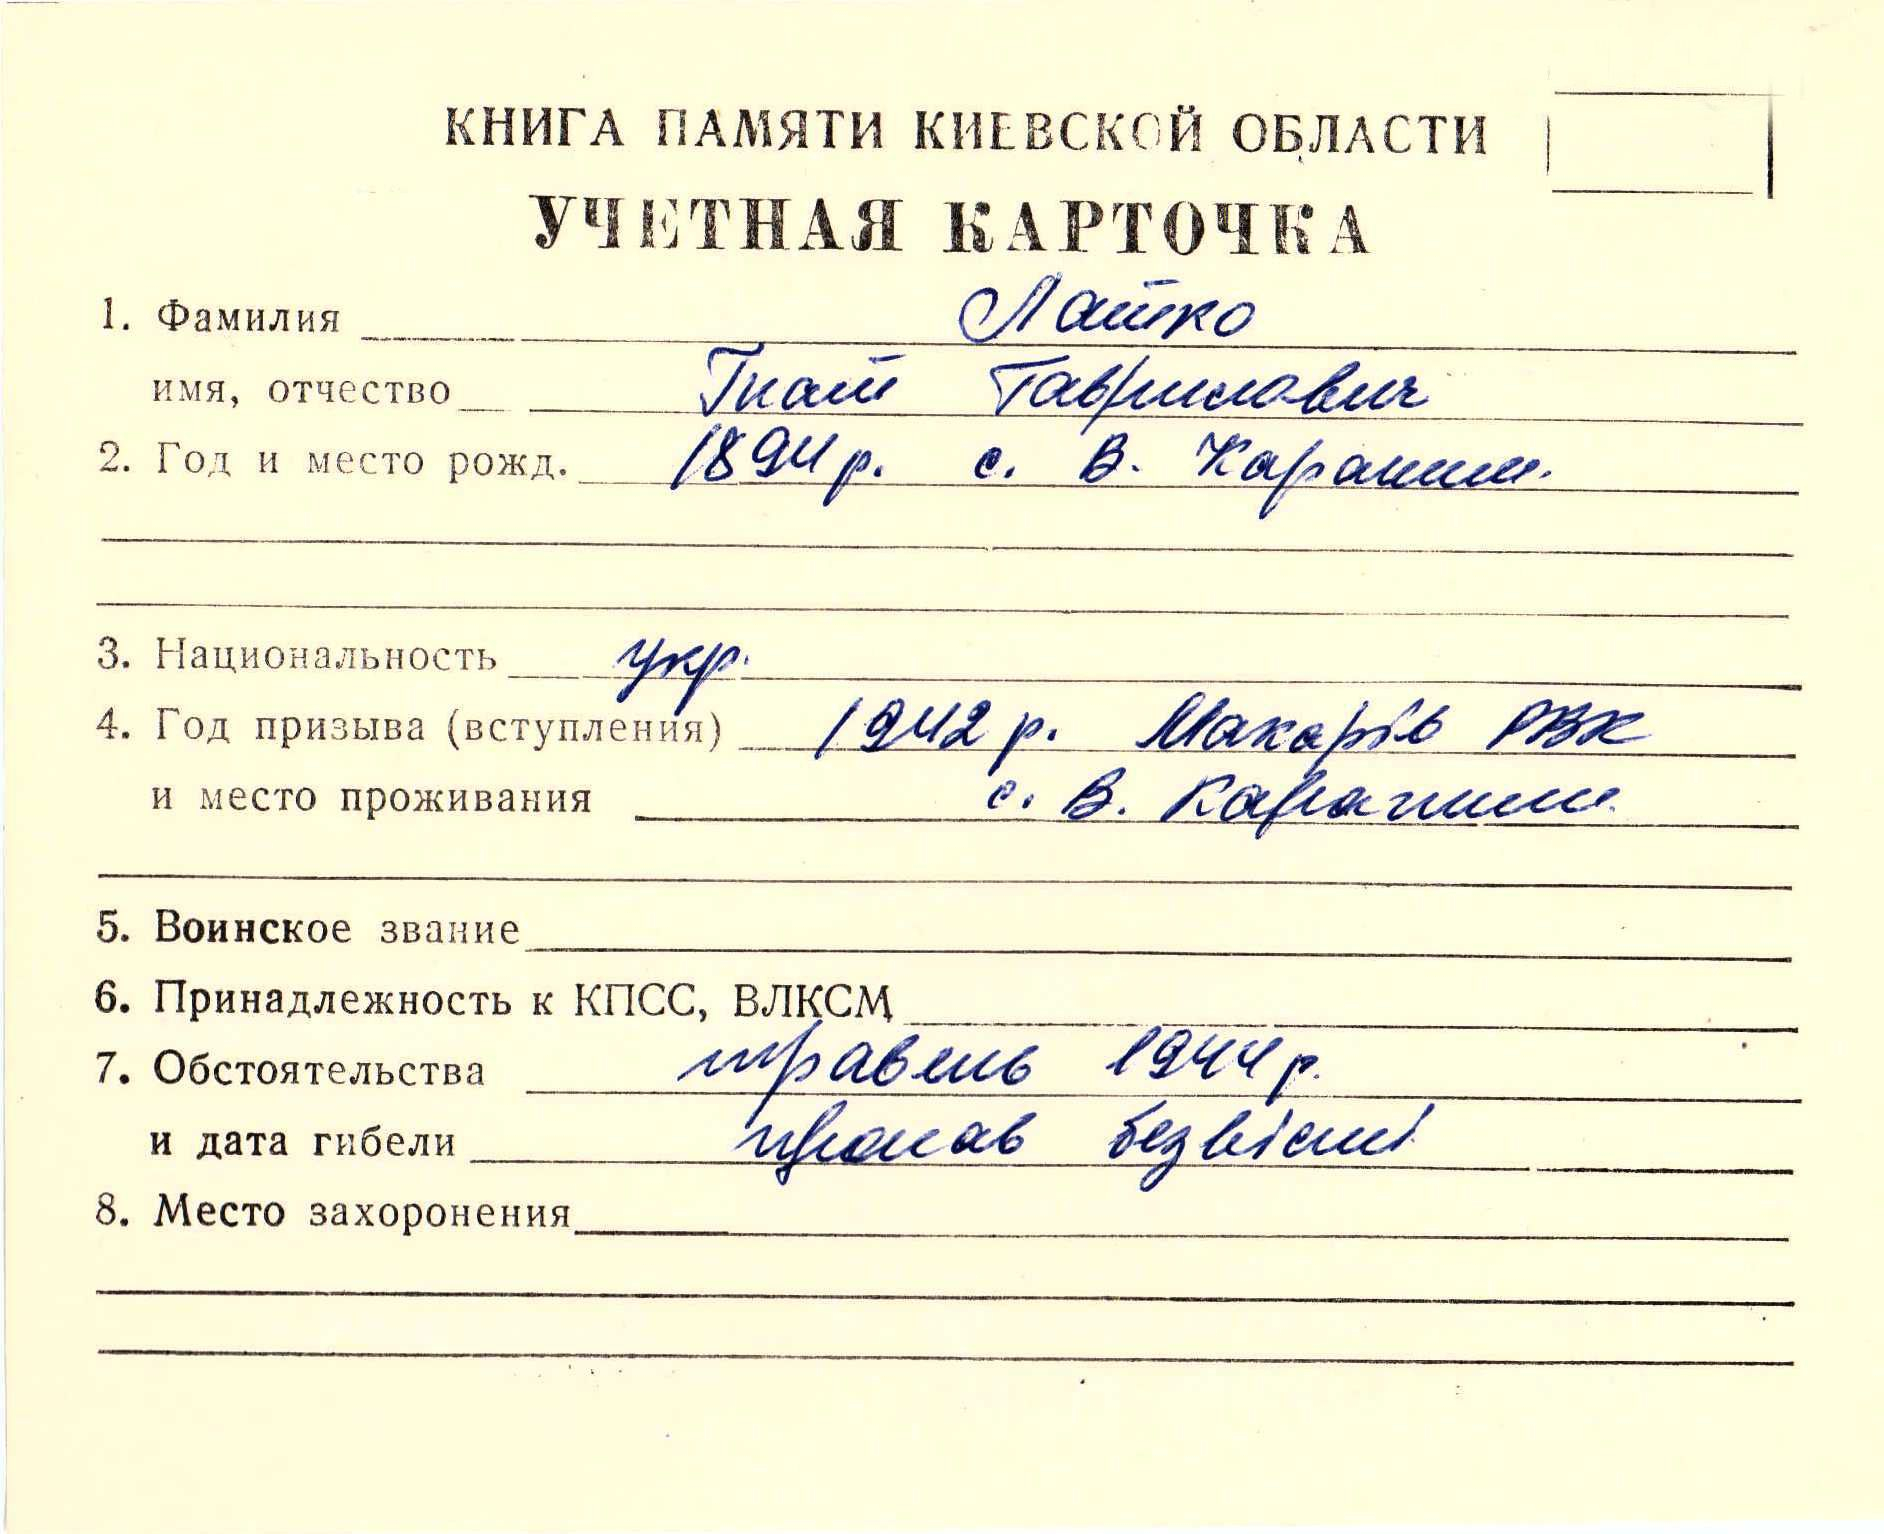 КНИГА ПАМЯТИ КИЕВСКОЙ ОБЛАСТИ
УЧЕТНАЯ КАРТОЧКА
1. Фамилия Латко
имя, отчество Гнат Гаврилович
2. Год и место рожд. 1894 р. с. В. Карашин.
3. Национальность укр.
4. Год призыва (вступления) 1942 р. Макарів РВК
и место проживания с. В. Карашин.
5. Воинское звание
6. Принадлежность к КПСС, ВЛКСМ
7. Обстоятельства травень 1944 р.
и дата гибели пропав безвісті
8. Место захоронения